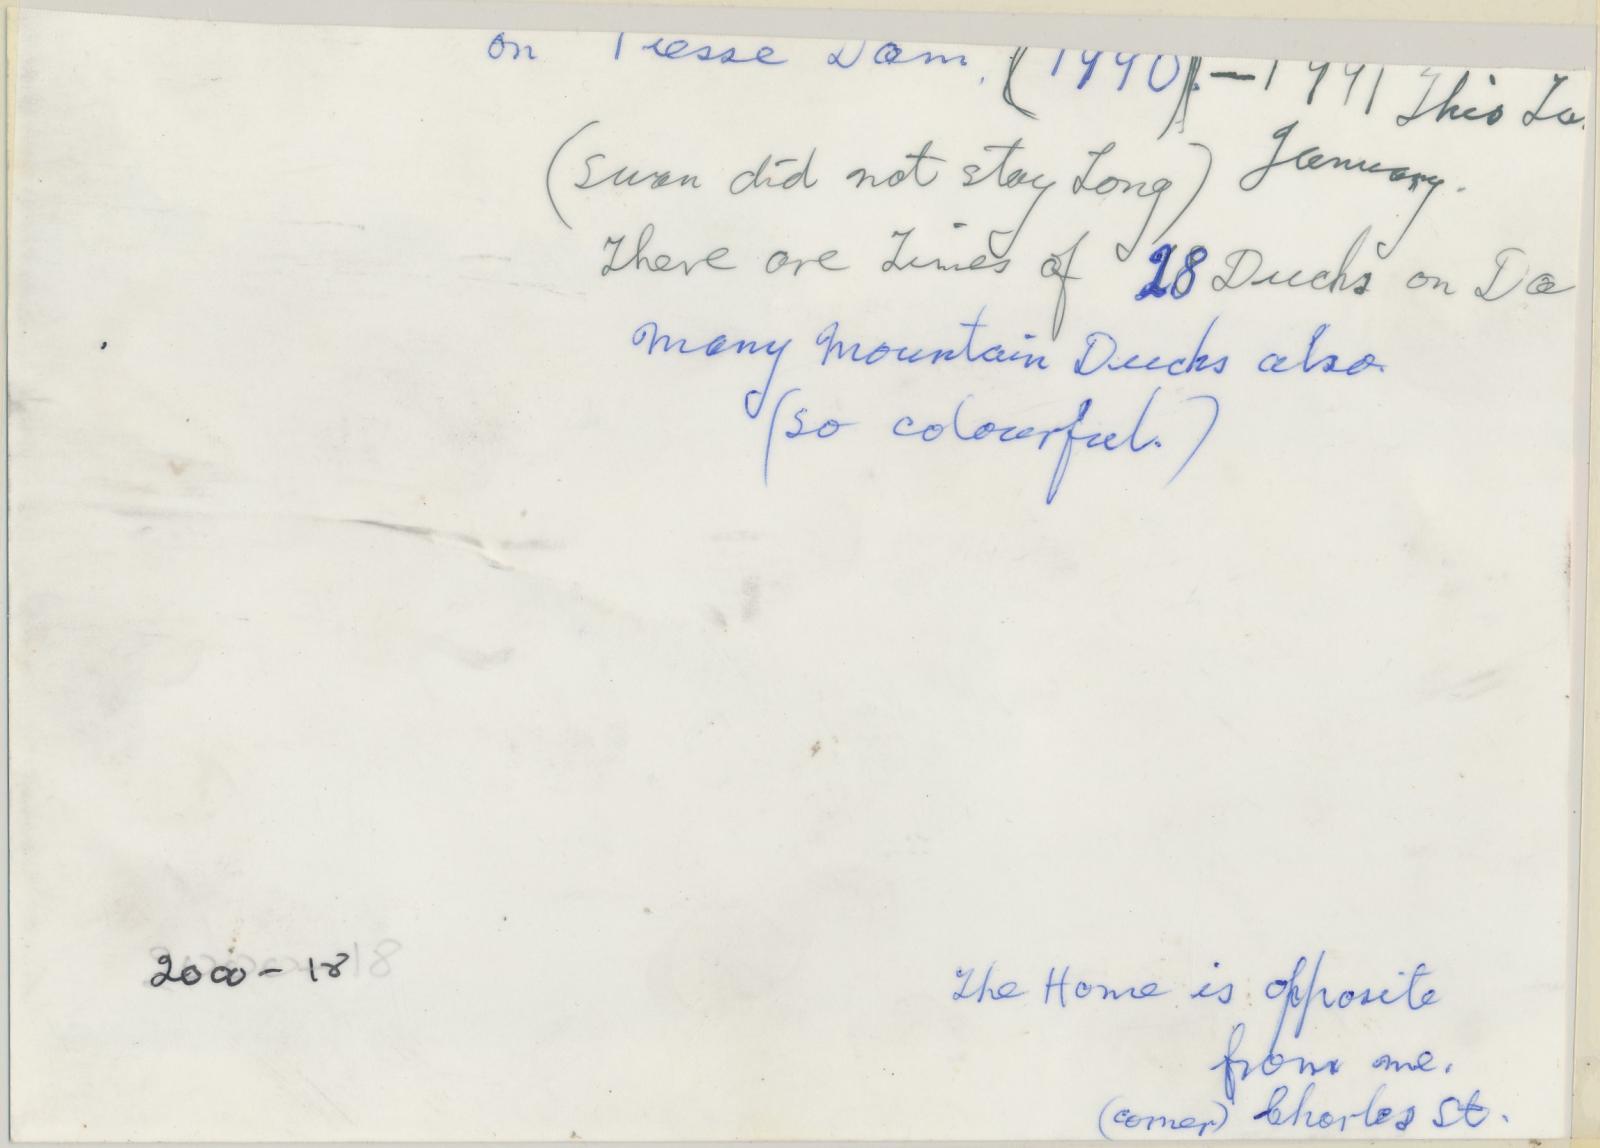 on Piesse Dam. (1990). – 1991 This
(swan did not stay Long) January.
There are Times of 28 Ducks on
Many Mountain Ducks also.
(so colourful.)
2000 - 18
The Home is opposite
from me.
(corner) Charles St.